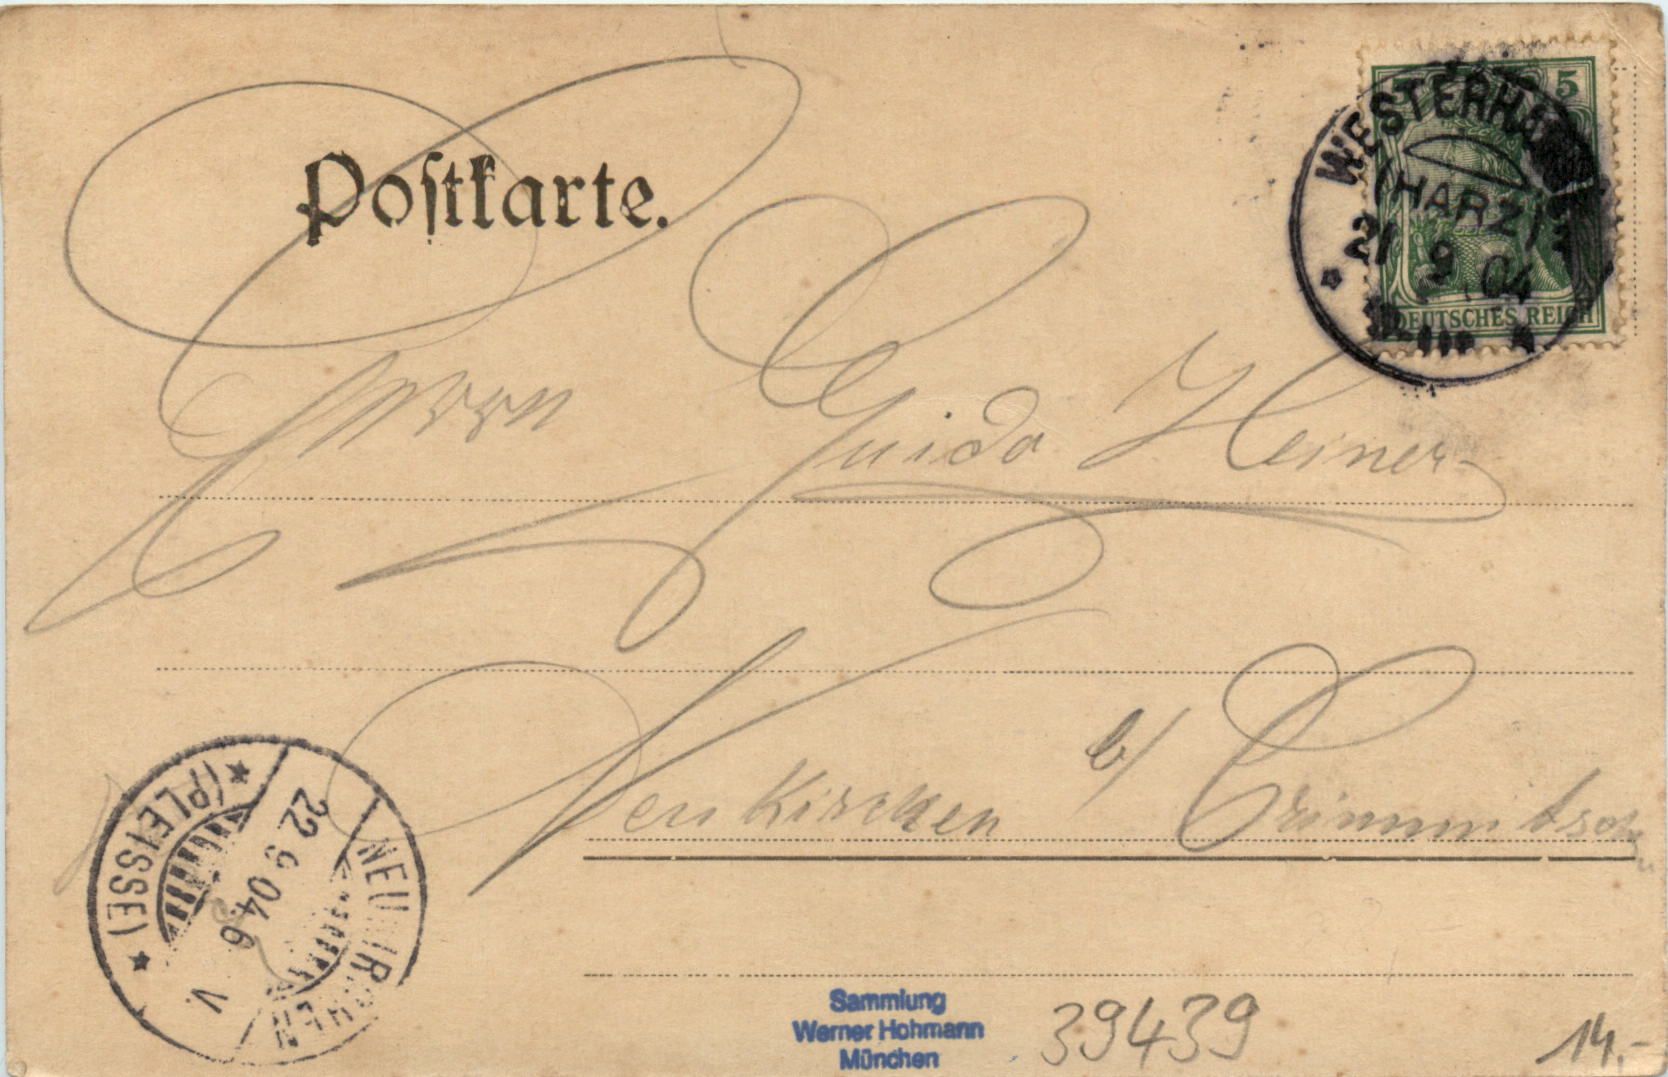 Postkarte.
5
WESTERHA
(HARZ)
21 9 04
DEUTSCHES REICH
Herrn Guido Heiner
Neukirchen b/ Crimmitsch
NEUKIRCHEN
22 9 04. 6
V.
* (PLEISSE) *
Sammlung
Werner Hohmann
München
39439
14.-